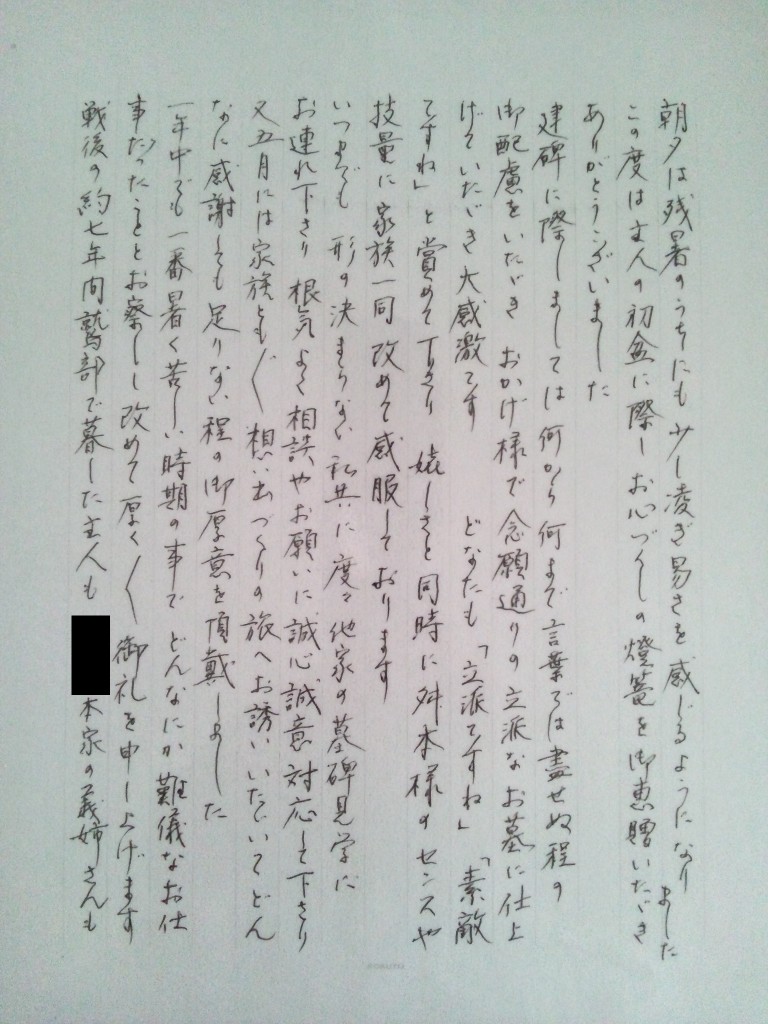 朝夕は残暑のうちにも少し凌ぎ易さを感じるようになりました
この度は主人の初盆に際しお心づくしの燈篭を御恵贈いただき
ありがとうございました
建碑に際しましては何から何まで言葉では盡せぬ程の
御配慮をいただき おかげ様で念願通りの立派なお墓に仕上
げていただき大感激です どなたも「立派ですね」「素敵
ですね」と賞めて下さり 嬉しさと同時に舛本様のセンスや
技量に家族一同改めて感服しております
いつまでも 形の決まらない私共に度々他家の墓碑見学に
お連れ下さり 根気よく相談やお願いに誠心誠意対応して下さり
又五月には家族とも〲 想い出づくりの旅へお誘いいただいてどん
なに感謝しても足りない程の御厚意を頂戴しました
一年中でも一番暑く苦しい時期の事で どんなにか難儀なお仕
事だったこととお察しし 改めて厚く〱 御礼を申し上げます
戦後の約七年間鷲部で暮した主人も 本家の義姉さんも